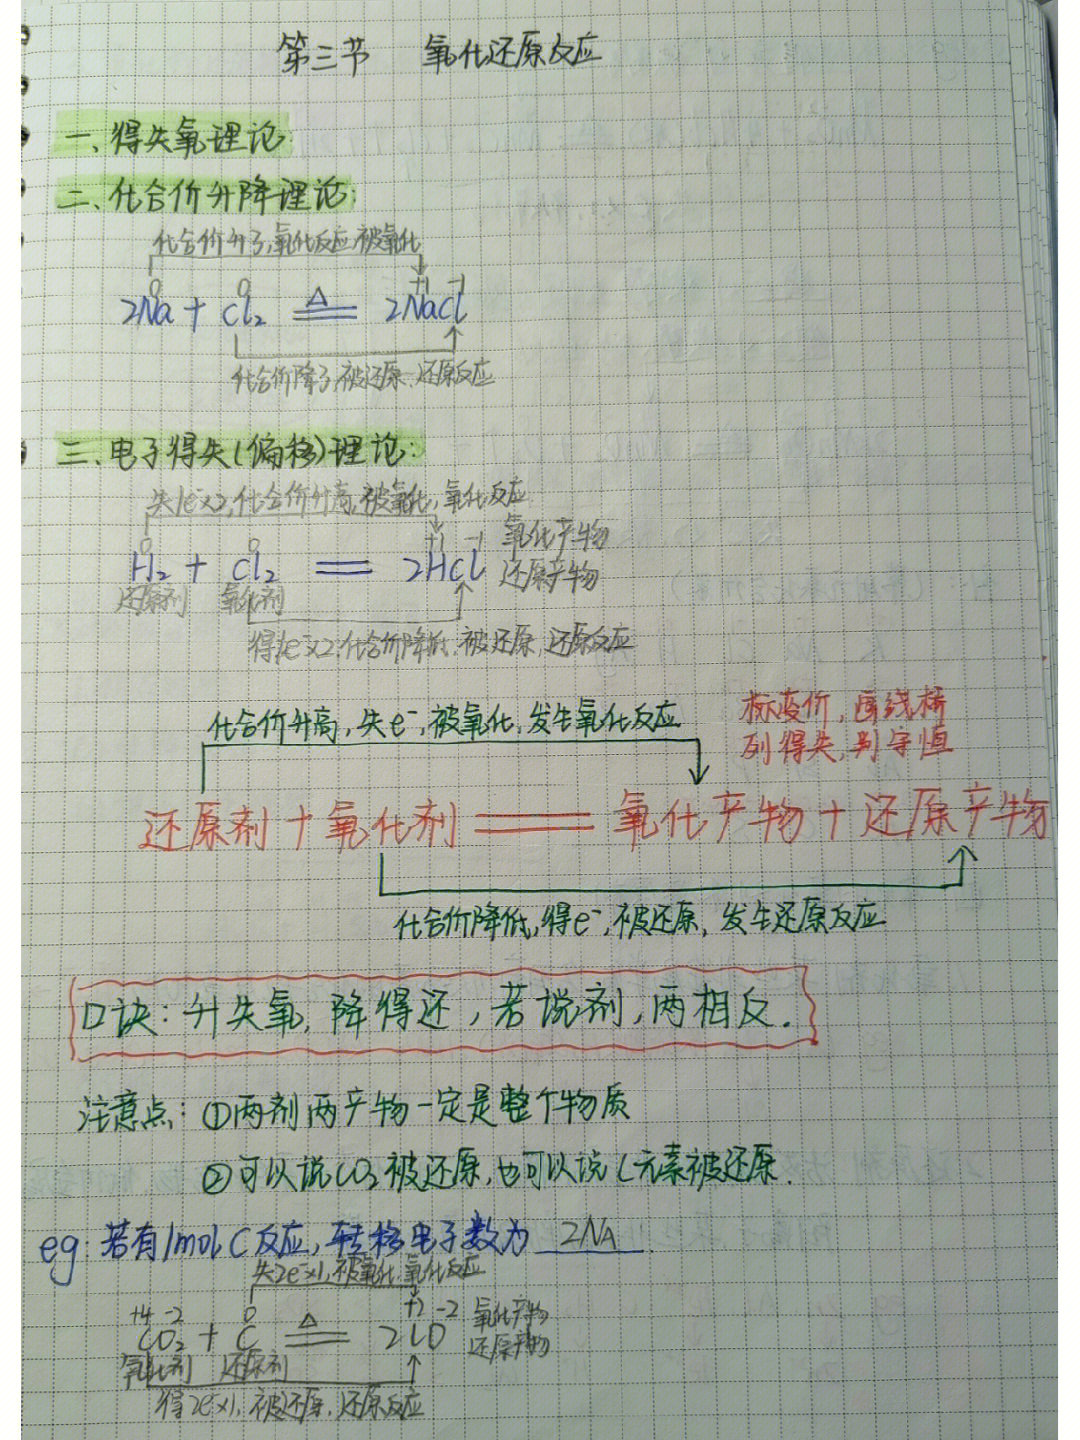 第三节 氧化还原反应
一、得失氧理论:
二、化合价升降理论:
化合价升了,氧化反应,被氧化
0 0 +1 -1
2Na + Cl₂ ≜ 2NaCl
化合价降了,被还原、还原反应
三、电子得失(偏移)理论:
失1e⁻×2,化合价升高,被氧化,氧化反应
0 0 +1 -1 氧化产物
H₂ + Cl₂ == 2HCl 还原产物
还原剂 氧化剂
得1e⁻×2,化合价降低,被还原,还原反应
标变价,画线桥
化合价升高,失e⁻,被氧化,发生氧化反应
列得失,判守恒
还原剂+氧化剂 == 氧化产物+还原产物
化合价降低,得e⁻,被还原,发生还原反应
口诀:升失氧,降得还,若说剂,两相反.
注意点:①两剂两产物一定是整个物质
②可以说CO₂被还原,也可以说C元素被还原.
eg:若有1molC反应,转移电子数为 2NA
失2e⁻×1,被氧化,氧化反应
+4 -2 0 +2 -2 氧化产物
CO₂ + C ≜ 2CO 还原产物
氧化剂 还原剂
得2e⁻×1,被还原,还原反应